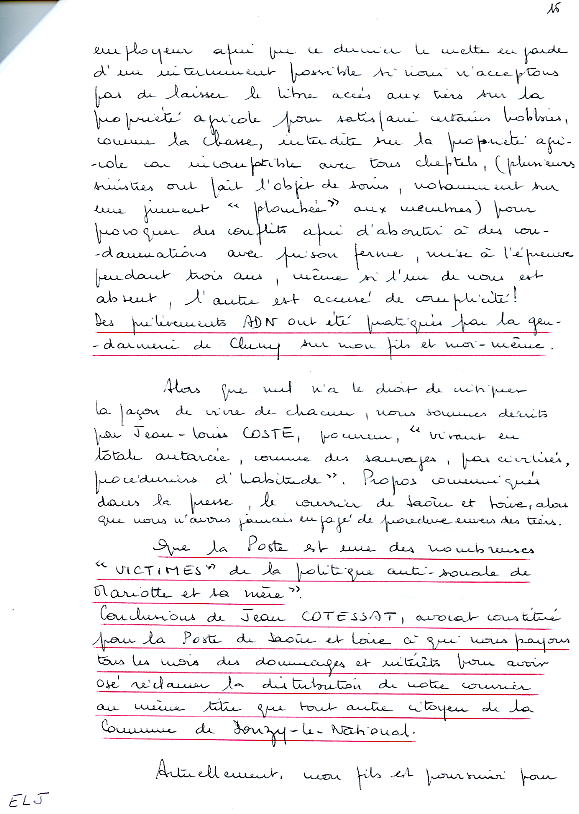 15
employeur afin que ce dernier le mette en garde
d'un internement possible si nous n'acceptons
pas de laisser le libre accès aux tiers sur la
propriété agricole pour satisfaire certains hobbies,
comme la chasse, interdite sur la propriété agri-
-cole car incompatible avec tous cheptels, (plusieurs
sinistres ont fait l'objet de soins, notamment sur
une jument "plombée" aux membres) pour
provoquer des conflits afin d'aboutir à des con-
-damnations avec prison ferme, mise à l'épreuve
pendant trois ans, même si l'un de nous est
absent, l'autre est accusé de complicité!
Des prélèvements ADN ont été pratiqués par la gen-
-darmerie de Cluny sur mon fils et moi-même.
Alors que nul n'a le droit de critiquer
la façon de vivre de chacun, nous sommes décrits
par Jean-Louis COSTE, procureur, "vivant en
totale autarcie, comme des sauvages, pas civilisés,
procéduriers d'habitude". Propos communiqués
dans la presse, le courrier de Saône et Loire, alors
que nous n'avons jamais engagé de procédure envers des tiers.
Que la Poste est une des nombreuses
"VICTIMES" de la politique anti-sociale de
Mariotte et sa mère".
Conclusions de Jean COTESSAT, avocat constitué
pour la Poste de Saône et Loire à qui nous payons
tous les mois des dommages et intérêts pour avoir
osé réclamer la distribution de notre courrier
au même titre que tout autre citoyen de la
Commune de Donzy-le-National.
Actuellement, mon fils est poursuivi pour
ELJ